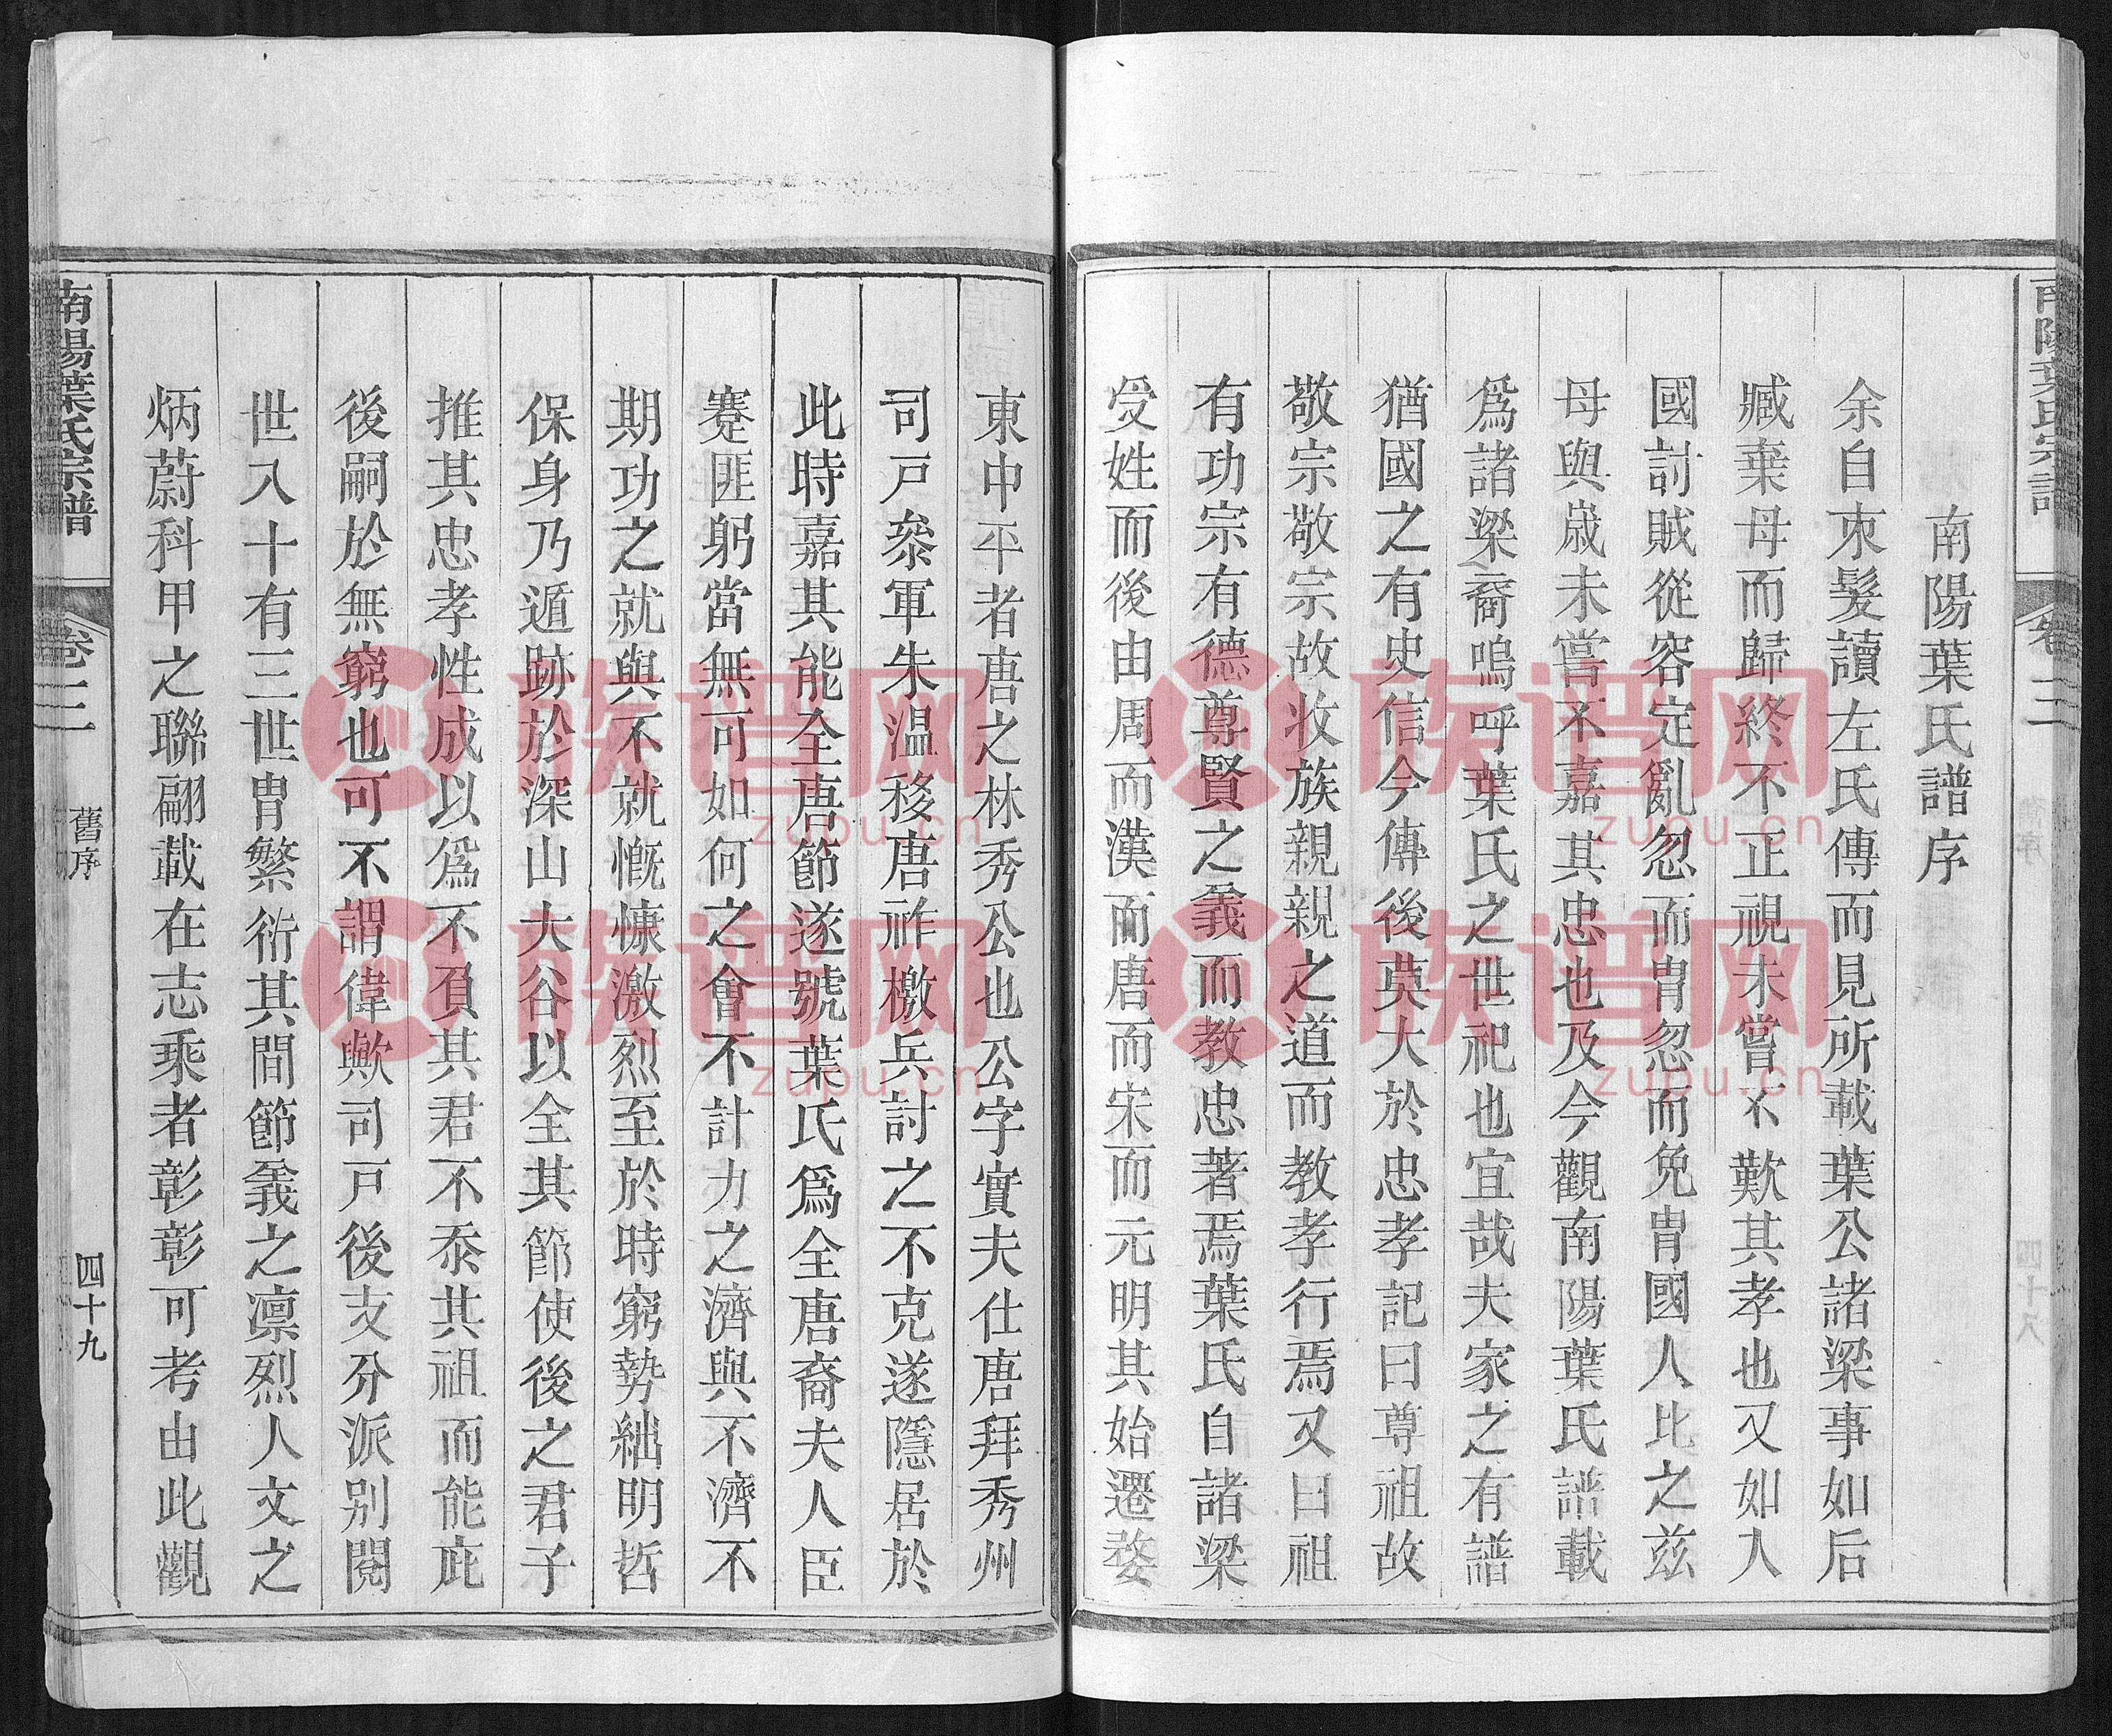 南陽葉氏宗譜
卷三
南陽葉氏譜序
余自朿髮讀左氏傳而見所載葉公諸梁事如后
臧棄母而歸終不正視未嘗不歎其孝也又如人
國討賊從容定亂忽而冑忽而免冑國人比之玆
母與歲未嘗不嘉其忠也及今觀南陽葉氏譜載
爲諸梁裔嗚呼葉氏之世祀也宜哉夫家之有譜
猶國之有史信今傳後莫大於忠孝記曰尊祖故
敬宗敬宗故收族親親之道而教孝行焉又曰祖
有功宗有德尊賢之義而教忠著焉葉氏自諸梁
受姓而後由周而漢而唐而宋而元明其始遷婺
東中平者唐之林秀公也公字實夫仕唐拜秀州
司戸叅軍朱温移唐祚檄兵討之不克遂隱居於
此時嘉其能全唐節遂號葉氏爲全唐裔夫人臣
蹇匪躬當無可如何之會不計力之濟與不濟不
期功之就與不就慨慷激烈至於時窮勢絀明哲
保身乃遁跡於深山大谷以全其節使後之君子
推其忠孝性成以爲不負其君不忝其祖而能庇
後嗣於無窮也可不謂偉歟司戸後支分派别閱
世入十有三世冑繁衍其間節義之凛烈人文之
炳蔚科甲之聯翩載在志乘者彰彰可考由此觀
南陽葉氏宗譜
卷三
舊序
四十九
族谱网
zupu.cn
族谱网
zupu.cn
族谱网
zupu.cn
族谱网
zupu.cn